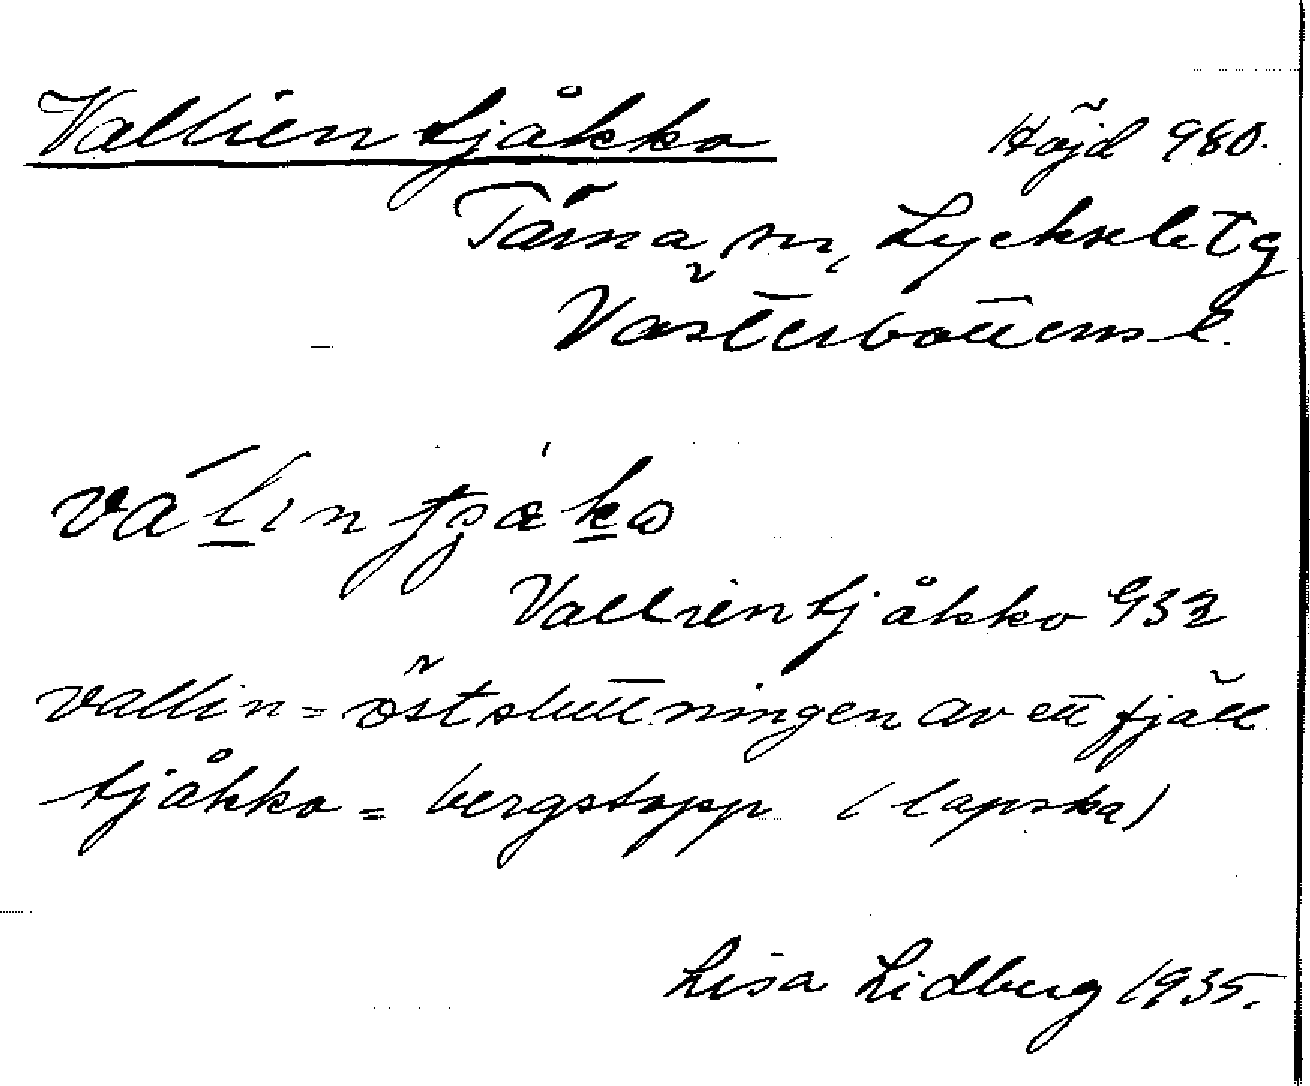 Vallientjåkko Höjd 980.
Tärna sn, Lycksele tg
Västerbottens l.
válin tjåko
Vallientjåkko 932
vallin = östsluttningen av ett fjäll
tjåkko = bergstopp (lapska)
Lisa Lidberg 1935.